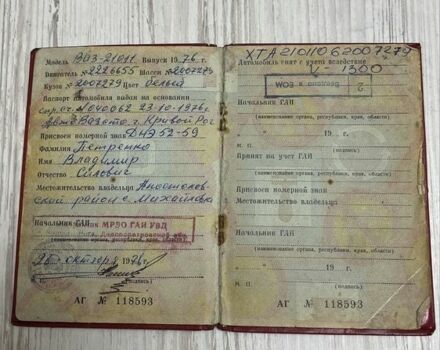 Модель ВАЗ-21011 Выпуск 1976 г.
Двигатель № 2226655 Шасси № 2007279
Кузов № 2007279 Цвет белый
Паспорт автомобиля выдан на основании
23-10-1976г
г. Кривой Рог
Присвоен номерной знак ДНЭ 52-59
Фамилия Петренко
Имя Владимир
Отчество
Местожительство владельца Апостолов-
ский район с. Михайловка
Начальник ГАИ
МРЭО ГАИ УВД
(наименование органа, республики, края, области)
26 октября 1976 г.
АГ № 118593
ХТА210110 62007279
Автомобиль снят с учета вследствие
Ц-1300
Введено в ЕОМ
Начальник ГАИ
(наименование органа, республики, края, области)
19 г.
М. П.
Принят на учет ГАИ
(наименование органа, республики, края, области)
Присвоен номерной знак
Местожительство владельца
Начальник ГАИ
(наименование органа, республики, края, области)
19 г.
М. П.
АГ № 118593